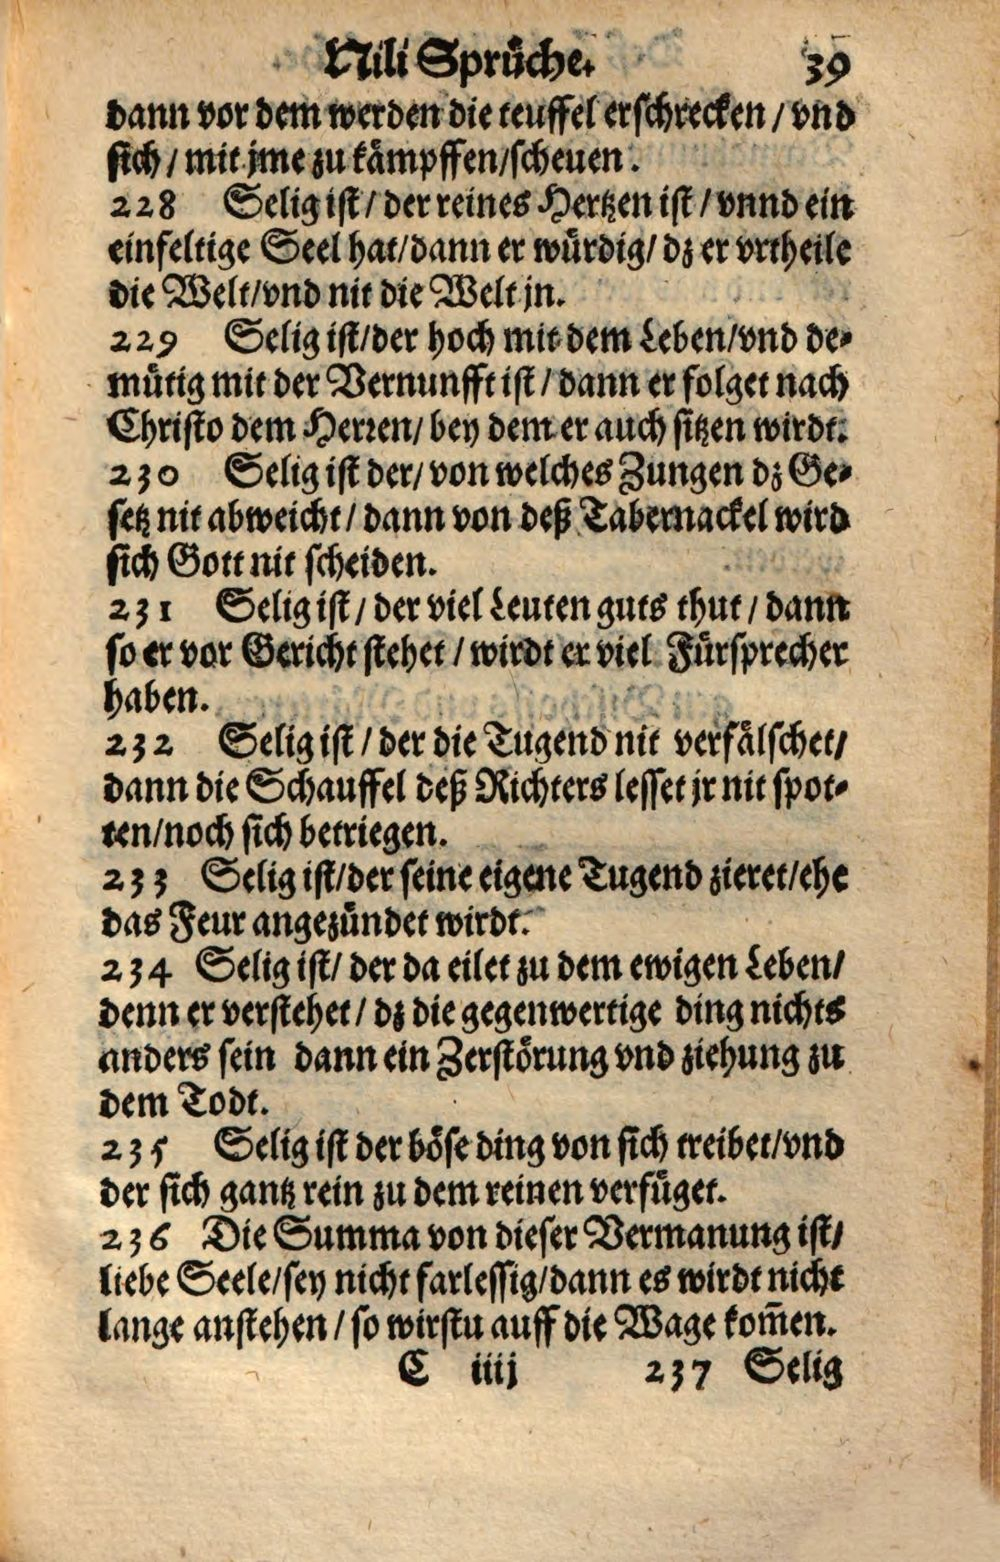 Nili Sprüche. 39
dann vor dem werden die teuffel erschrecken / vnd
sich / mit jme zu kämpffen/scheuen.
228 Selig ist / der reines Hertzen ist / vnnd ein
einfeltige Seel hat/dann er würdig/ dz er vrtheile
die Welt/vnd nit die Welt jn.
229 Selig ist/der hoch mit dem Leben/vnd de-
mütig mit der Vernunfft ist / dann er folget nach
Christo dem Herren/ bey dem er auch sitzen wirdt.
230 Selig ist der/ von welches Zungen dz Ge-
setz nit abweicht / dann von deß Tabernackel wird
sich Gott nit scheiden.
231 Selig ist / der viel Leuten guts thut / dann
so er vor Gericht stehet / wirdt er viel Fürsprecher
haben.
232 Selig ist / der die Tugend nit verfälschet/
dann die Schauffel deß Richters lesset jr nit spot-
ten/noch sich betriegen.
233 Selig ist/der seine eigene Tugend zieret/ehe
das Feur angezündet wirdt.
234 Selig ist/ der da eilet zu dem ewigen Leben/
denn er verstehet / dz die gegenwertige ding nichts
anders sein dann ein Zerstörung vnd ziehung zu
dem Todt.
235 Selig ist der böse ding von sich treibet/vnd
der sich gantz rein zu dem reinen verfüget.
236 Die Summa von dieser Vermanung ist/
liebe Seele/sey nicht farlessig/dann es wirdt nicht
lange anstehen / so wirstu auff die Wage kom̄en.
C iiij 237 Selig